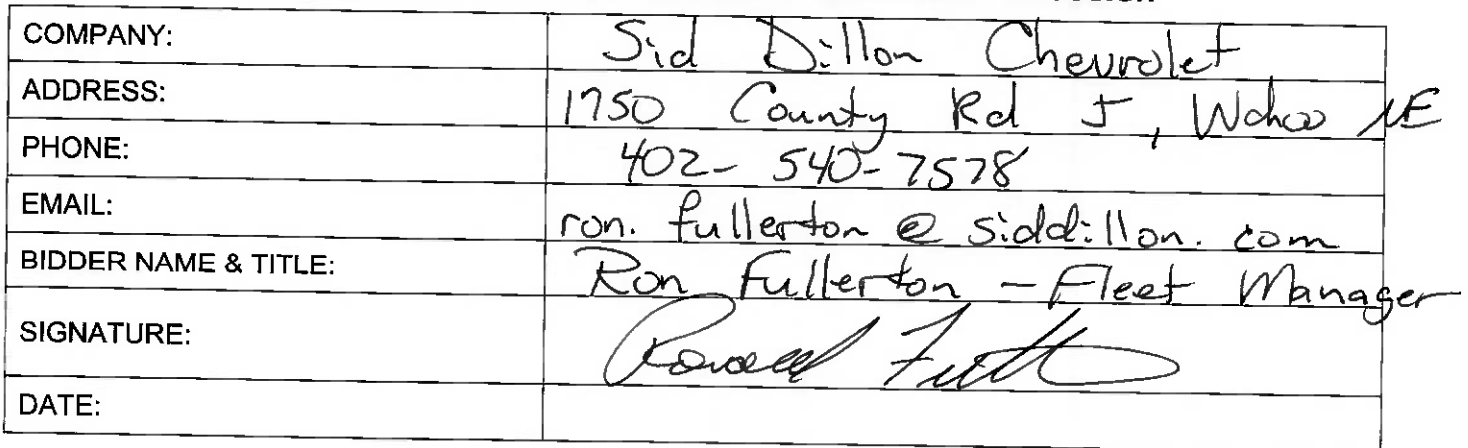 COMPANY: Sid Dillon Chevrolet
ADDRESS: 1750 County Rd J, Wahoo NE
PHONE: 402-540-7578
EMAIL: ron.fullerton@siddillon.com
BIDDER NAME & TITLE: Ron Fullerton - Fleet Manager
SIGNATURE:
DATE: